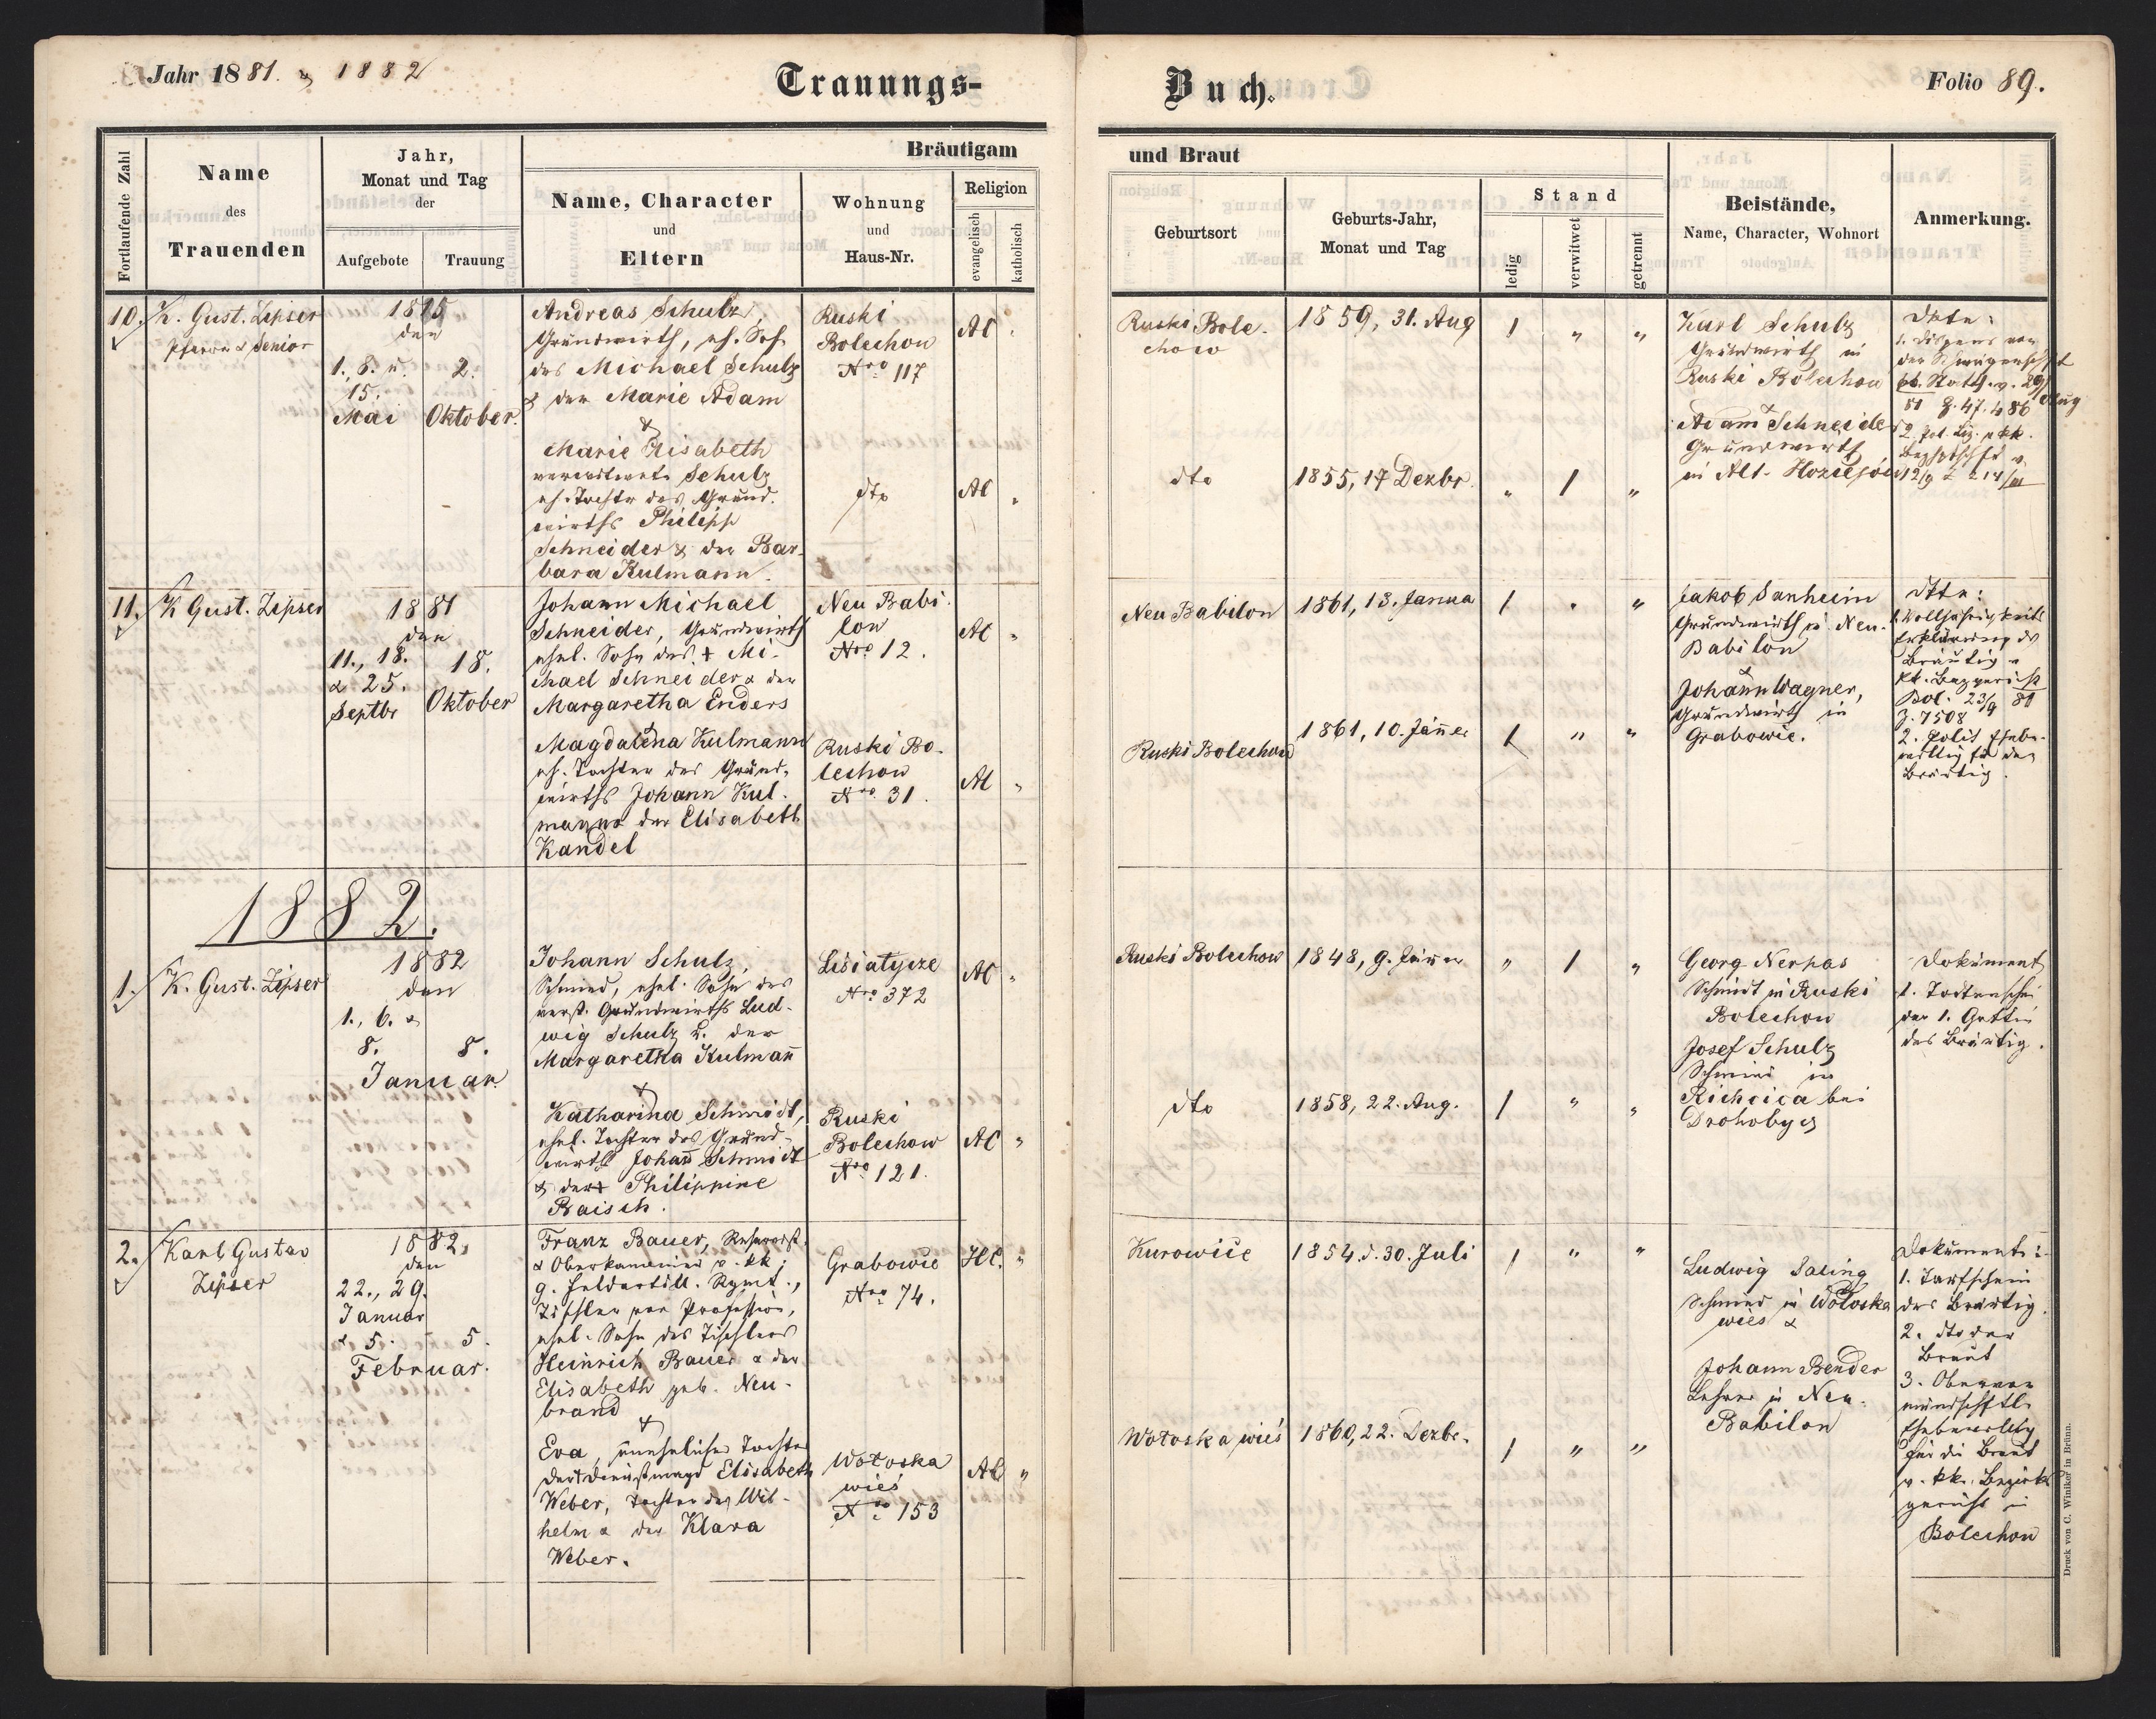 Jahr 1881. u 1882
Trauungs-
Buch.
Folio 89.
Fortlaufende Zahl
Name
des
Trauenden
Jahr,
Monat und Tag
der
Aufgebote
Trauung
Bräutigam
Name, Character
und
Eltern
Wohnung
und
Haus-Nr.
Religion
evangelisch
katholisch
und Braut
Geburtsort
Geburts-Jahr,
Monat und Tag
Stand
ledig
verwitwet
getrennt
Beistände,
Name, Character, Wohnort
Anmerkung.
10. K. Gust. Zipser
Pfarrer & Senior
den
1., 8. u. 2.
15.
Mai Oktober.
Andreas Schulz,
Grundwirth, eh. Soh
des Michael Schulz
& der Marie Adam
&
Marie Elisabeth
verwitwete Schulz
eh. Tochter des Grund-
wirths Philipp
Schneider & der Bar-
bara Kulmann.
Ruski
Bolechow
Nro 117
AC "
dto
AC "
Ruski Bole-
chow
1859, 31. Aug
/ " "
dto
1855, 17 Dezbr.
" / "
Karl Schulz
Grundwirth in
Ruski Bolechow
&
Adam Schneider
Grundwirth
in Alt-
1. Dispens von
der Schwägerschaft
11. K Gust. Zipser
1881
den
11., 18. 18.
& 25.
Septbr Oktober
Johann Michael
Schneider, Grundwirth
ehel. Sohn des † Mi-
chael Schneider & der
Margaretha Enders
&
Magdalena Kulmann
eh. Tochter des Grund-
wirths Johann Kul-
manns der Elisabeth
Kandel
Neu Babi-
lon
Nro 12.
AC "
Ruski Bo-
lechow
Nro 31.
AC "
Neu Babilon
1861, 13. Janua
/ " "
Ruski Bolechow
1861, 10. Jänner
/ " "
Jakob Sanheim
Grundwirth in Neu-
Babilon
&
Johann Wagner,
Grundwirth in
Grabowic.
1. Volljährigkeits
Erklärung des
Bräutig.
Bol. 23/9 81
Z. 7508
2.
Bräutig.
1882.
1. K. Gust. Zipser
1882
den
1., 6. &
8. 8.
Januar
Johann Schulz,
Schmied, ehel. Sohn des
verst. Grundwirths Lud-
wig Schulz u. der
Margaretha Kulmann
&
Katharina Schmidt,
ehel. Tochter des Grund-
wirths Johann Schmidt
& der † Philippine
Raisch.
Lisiatycze
Nro 372
AC "
Ruski
Bolechow
Nro 121.
AC "
Ruski Bolechow
1848, 9. Jänner
" / "
dto
1858, 22. Aug.
/ " "
Georg Nerpas
Schmidt in Ruski
Bolechow
Josef Schulz
Schmied in
Richcica bei
Drohobycz
Dokument
1. Todtenschei
der 1. Gattin
des Bräutig.
2. Karl Gustav
Zipser
1882,
den
22., 29.
Januar
& 5. 5.
Februar.
Franz Bauer, Reservist
& Oberkanonier v. kk.
9. Feldartill. Rgmt.,
Tischler per Profession,
ehel. Sohn des Tischlers
Heinrich Bauer & der
Elisabeth geb. Neu-
brand
&
Eva, uneheliche Tochter
der † Dienstmagd Elisabeth
Weber, Tochter des Wil-
helm & der Klara
Weber.
Grabowic
Nro 74.
HC. "
Wołoska
wieś
Nro 153
AC "
Kurowice
1854, d. 30. Juli
/ " "
Wołoska wieś
1860, 22. Dezbr.
/ " "
Ludwig Saling
Schmied in Wołoska
wieś &
Johann Bender
Lehrer in Neu-
Babilon
Dokumente:
1. Taufschein
des Bräutig.
2. dto der
Braut
3. Obervor
mundschftl.
Ehebewillig
für die Braut
v. kk. Bezirks
gericht in
Bolechow
Druck von C. Winiker in Brünn.